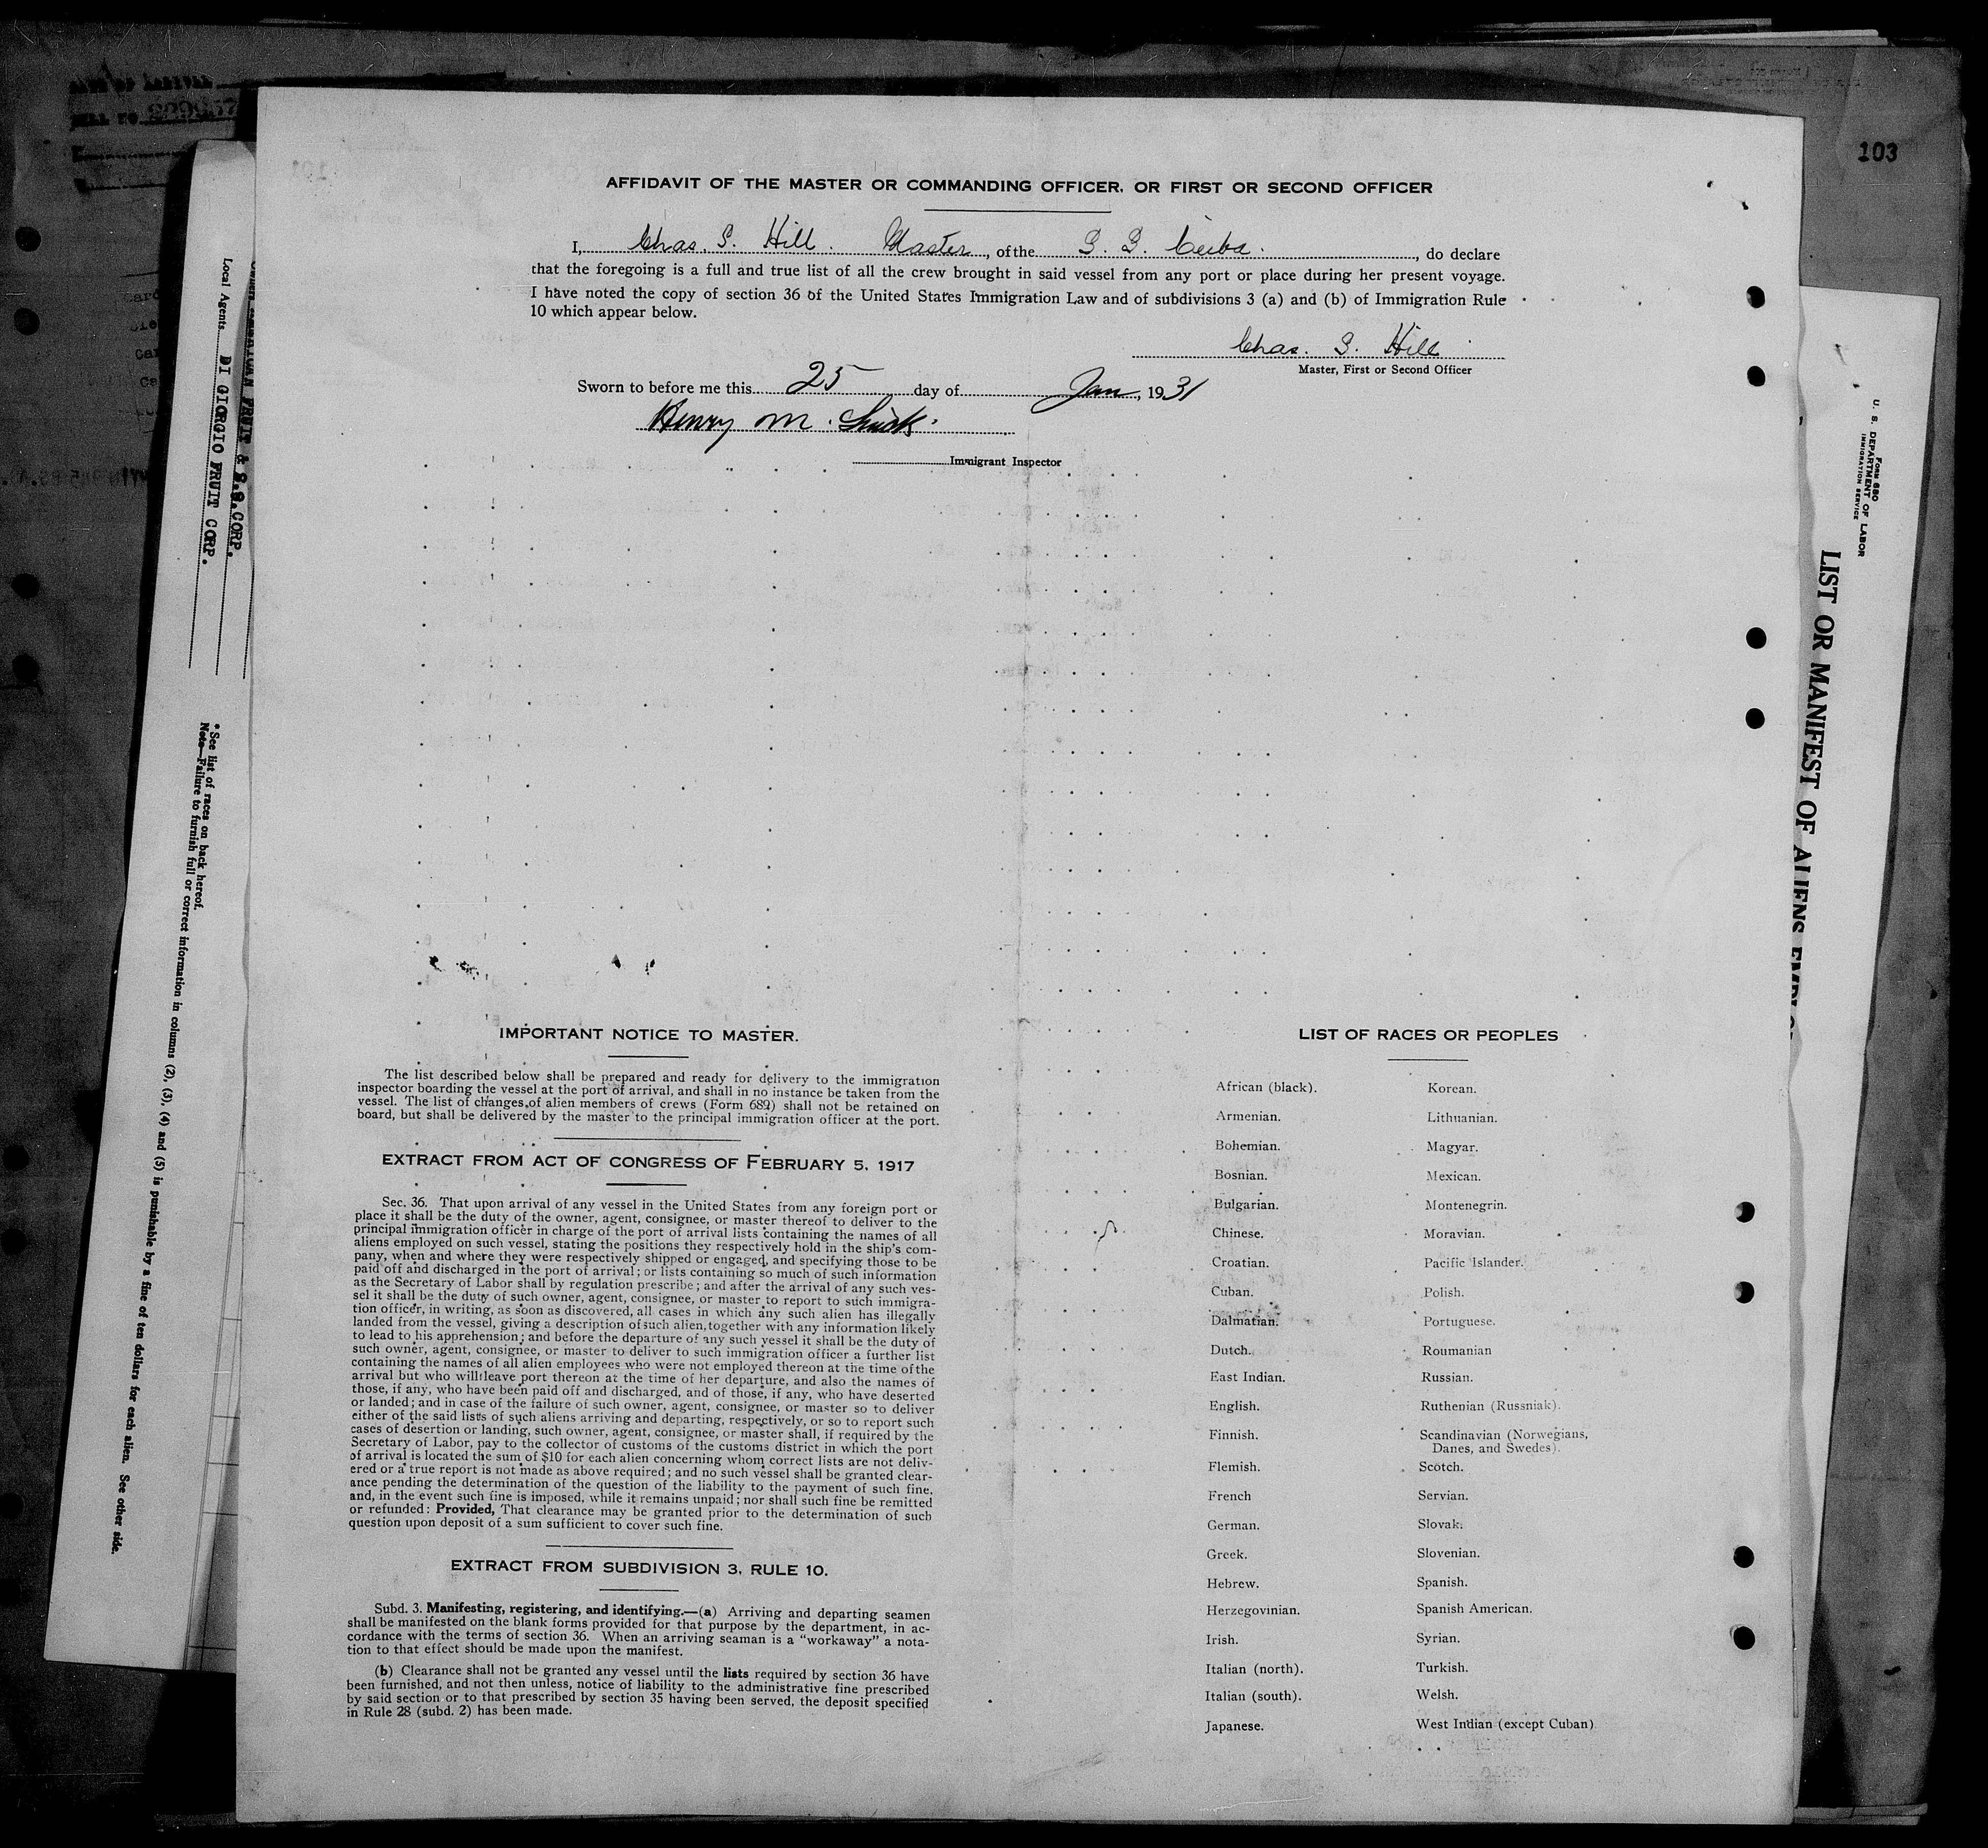 103
AFFIDAVIT OF THE MASTER OR COMMANDING OFFICER, OR FIRST OR SECOND OFFICER
I, Chas. S. Hill. Master, of the S. S. Ceiba., do declare
that the foregoing is a full and true list of all the crew brought in said vessel from any port or place during her present voyage.
I have noted the copy of section 36 of the United States Immigration Law and of subdivisions 3 (a) and (b) of Immigration Rule
10 which appear below.
Chas. S. Hill
Master, First or Second Officer
Sworn to before me this 25 day of Jan, 1931
Henry M.
Immigrant Inspector
IMPORTANT NOTICE TO MASTER.
The list described below shall be prepared and ready for delivery to the immigration
inspector boarding the vessel at the port of arrival, and shall in no instance be taken from the
vessel. The list of changes of alien members of crews (Form 689) shall not be retained on
board, but shall be delivered by the master to the principal immigration officer at the port.
EXTRACT FROM ACT OF CONGRESS OF FEBRUARY 5, 1917
Sec. 36. That upon arrival of any vessel in the United States from any foreign port or
place it shall be the duty of the owner, agent, consignee, or master thereof to deliver to the
principal immigration officer in charge of the port of arrival lists containing the names of all
aliens employed on such vessel, stating the positions they respectively hold in the ship's com-
pany, when and where they were respectively shipped or engaged, and specifying those to be
paid off and discharged in the port of arrival; or lists containing so much of such information
as the Secretary of Labor shall by regulation prescribe; and after the arrival of any such ves-
sel it shall be the duty of such owner, agent, consignee, or master to report to such immigra-
tion officer, in writing, as soon as discovered, all cases in which any such alien has illegally
landed from the vessel, giving a description of such alien, together with any information likely
to lead to his apprehension; and before the departure of any such vessel it shall be the duty of
such owner, agent, consignee, or master to deliver to such immigration officer a further list
containing the names of all alien employees who were not employed thereon at the time of the
arrival but who will leave port thereon at the time of her departure, and also the names of
those, if any, who have been paid off and discharged, and of those, if any, who have deserted
or landed; and in case of the failure of such owner, agent, consignee, or master so to deliver
either of the said lists of such aliens arriving and departing, respectively, or so to report such
cases of desertion or landing, such owner, agent, consignee, or master shall, if required by the
Secretary of Labor, pay to the collector of customs of the customs district in which the port
of arrival is located the sum of $10 for each alien concerning whom correct lists are not deliv-
ered or a true report is not made as above required; and no such vessel shall be granted clear-
ance pending the determination of the question of the liability to the payment of such fine,
and, in the event such fine is imposed, while it remains unpaid; nor shall such fine be remitted
or refunded: Provided, That clearance may be granted prior to the determination of such
question upon deposit of a sum sufficient to cover such fine.
EXTRACT FROM SUBDIVISION 3, RULE 10.
Subd. 3. Manifesting, registering, and identifying.—(a) Arriving and departing seamen
shall be manifested on the blank forms provided for that purpose by the department, in ac-
cordance with the terms of section 36. When an arriving seaman is a "workaway" a nota-
tion to that effect should be made upon the manifest.
(b) Clearance shall not be granted any vessel until the lists required by section 36 have
been furnished, and not then unless, notice of liability to the administrative fine prescribed
by said section or to that prescribed by section 35 having been served, the deposit specified
in Rule 28 (subd. 2) has been made.
LIST OF RACES OR PEOPLES
African (black). Korean.
Armenian. Lithuanian.
Bohemian. Magyar.
Bosnian. Mexican.
Bulgarian. Montenegrin.
Chinese. Moravian.
Croatian. Pacific Islander.
Cuban. Polish.
Dalmatian. Portuguese.
Dutch. Roumanian
East Indian. Russian.
English. Ruthenian (Russniak).
Finnish. Scandinavian (Norwegians,
Danes, and Swedes).
Flemish. Scotch.
French Servian.
German. Slovak.
Greek. Slovenian.
Hebrew. Spanish.
Herzegovinian. Spanish American.
Irish. Syrian.
Italian (north). Turkish.
Italian (south). Welsh.
Japanese. West Indian (except Cuban)
FRUIT & S.S. CORP.
Local Agents DI GIORGIO FRUIT CORP.
* See list of races on back hereof.
Note—Failure to furnish full or correct information in columns (2), (3), (4) and (5) is punishable by a fine of ten dollars for each alien. See other side.
Form 680
U. S. DEPARTMENT OF LABOR
IMMIGRATION SERVICE
LIST OR MANIFEST OF ALIENS